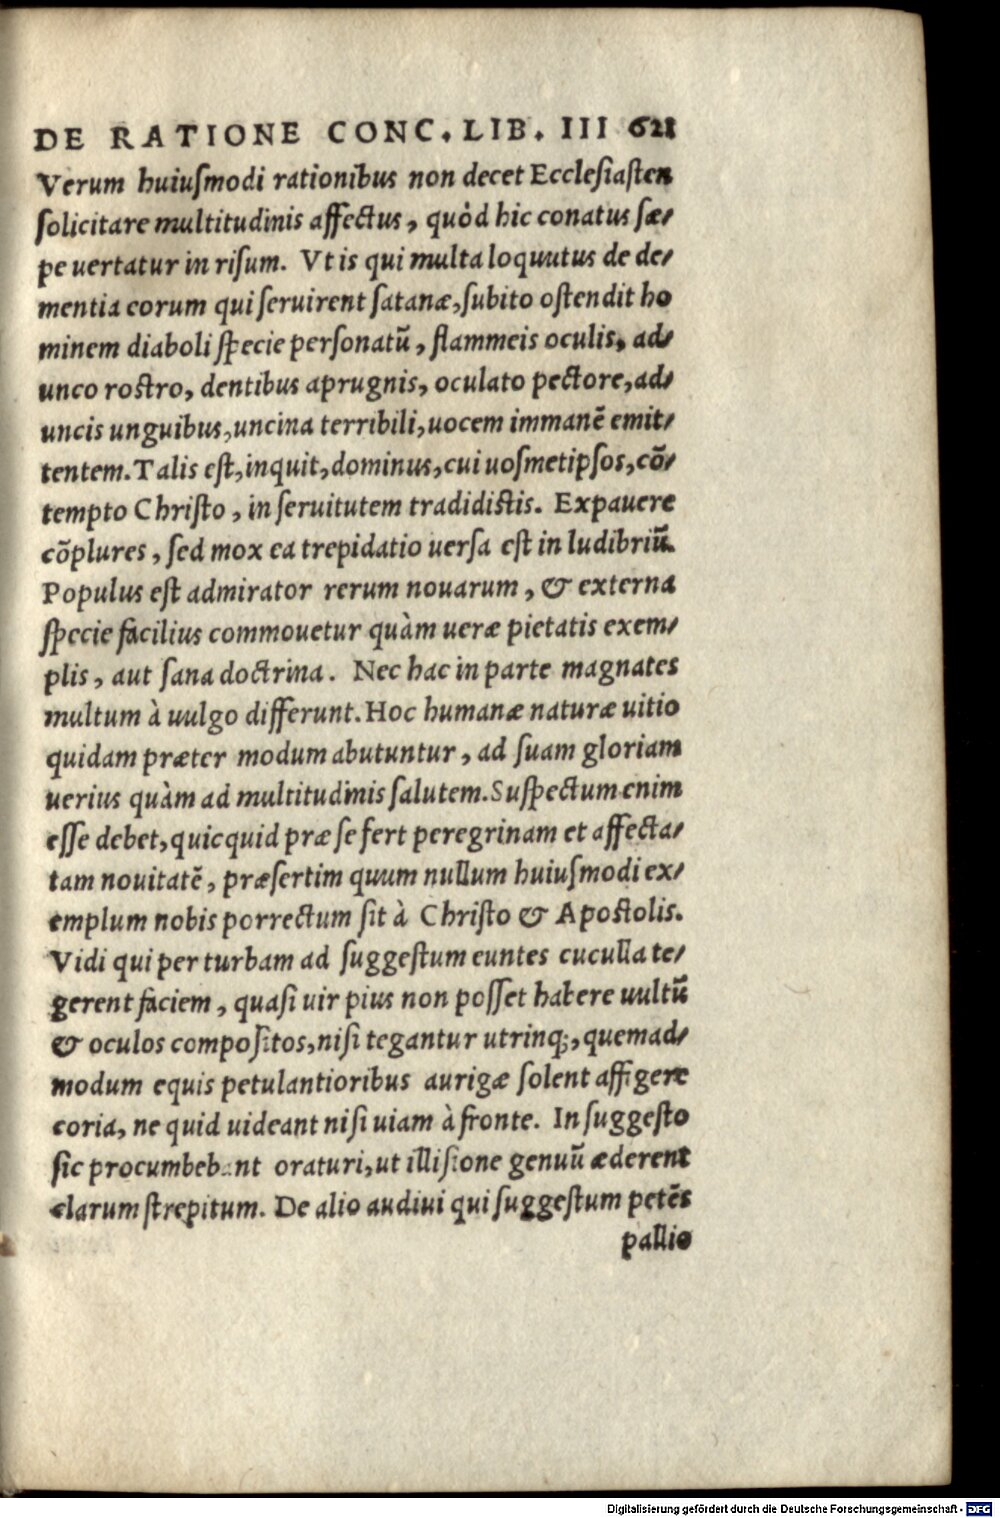 DE RATIONE CONC. LIB. III 621
Verum huiuſmodi rationibus non decet Eccleſiaſten
ſolicitare multitudinis affectus, quòd hic conatus ſæ/
pe uertatur in riſum. Vt is qui multa loquutus de de/
mentia eorum qui ſeruirent ſatanæ, ſubito oſtendit ho
minem diaboli ſpecie perſonatū, flammeis oculis, ad/
unco roſtro, dentibus aprugnis, oculato pectore, ad/
uncis unguibus, uncina terribili, uocem immanē emit/
tentem. Talis eſt, inquit, dominus, cui uoſmetipſos, cō/
tempto Chriſto, in ſeruitutem tradidiſtis. Expauere
cōplures, ſed mox ea trepidatio uerſa eſt in ludibriū.
Populus eſt admirator rerum nouarum, & externa
ſpecie facilius commouetur quàm ueræ pietatis exem/
plis, aut ſana doctrina. Nec hac in parte magnates
multum à uulgo differunt. Hoc humanæ naturæ uitio
quidam præter modum abutuntur, ad ſuam gloriam
uerius quàm ad multitudinis ſalutem. Suſpectum enim
eſſe debet, quicquid præ ſe fert peregrinam et affecta/
tam nouitatē, præſertim quum nullum huiuſmodi ex/
emplum nobis porrectum ſit à Chriſto & Apoſtolis.
Vidi qui per turbam ad ſuggeſtum euntes cuculla te/
gerent faciem, quaſi uir pius non poſſet habere uultū
& oculos compoſitos, niſi tegantur utrinq;, quemad/
modum equis petulantioribus aurigæ ſolent affigere
coria, ne quid uideant niſi uiam à fronte. In ſuggeſto
ſic procumbebant oraturi, ut illiſione genuū æderent
clarum ſtrepitum. De alio audiui qui ſuggeſtum petēs
pallio
Digitalisierung gefördert durch die Deutsche Forschungsgemeinschaft - DFG